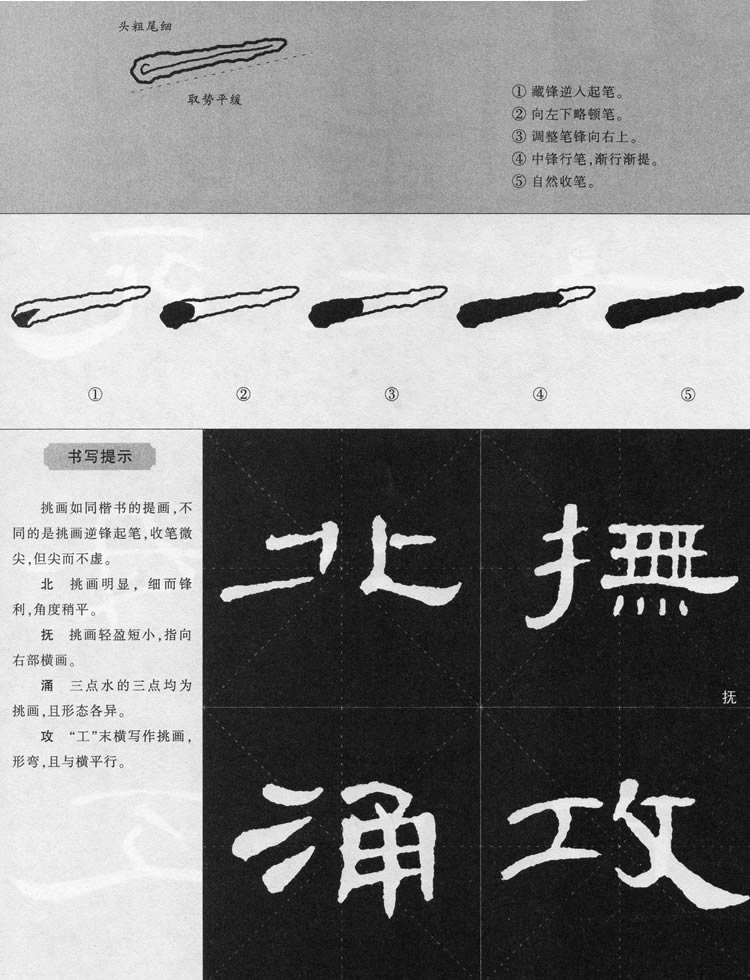 头粗尾细
取势平缓
① 藏锋逆入起笔。
② 向左下略顿笔。
③ 调整笔锋向右上。
④ 中锋行笔,渐行渐提。
⑤ 自然收笔。
① ② ③ ④ ⑤
书写提示
挑画如同楷书的提画,不
同的是挑画逆锋起笔,收笔微
尖,但尖而不虚。
北 挑画明显,细而锋
利,角度稍平。
抚 挑画轻盈短小,指向
右部横画。
涌 三点水的三点均为
挑画,且形态各异。
攻 “工”末横写作挑画,
形弯,且与横平行。
北 撫
抚
涌 攻